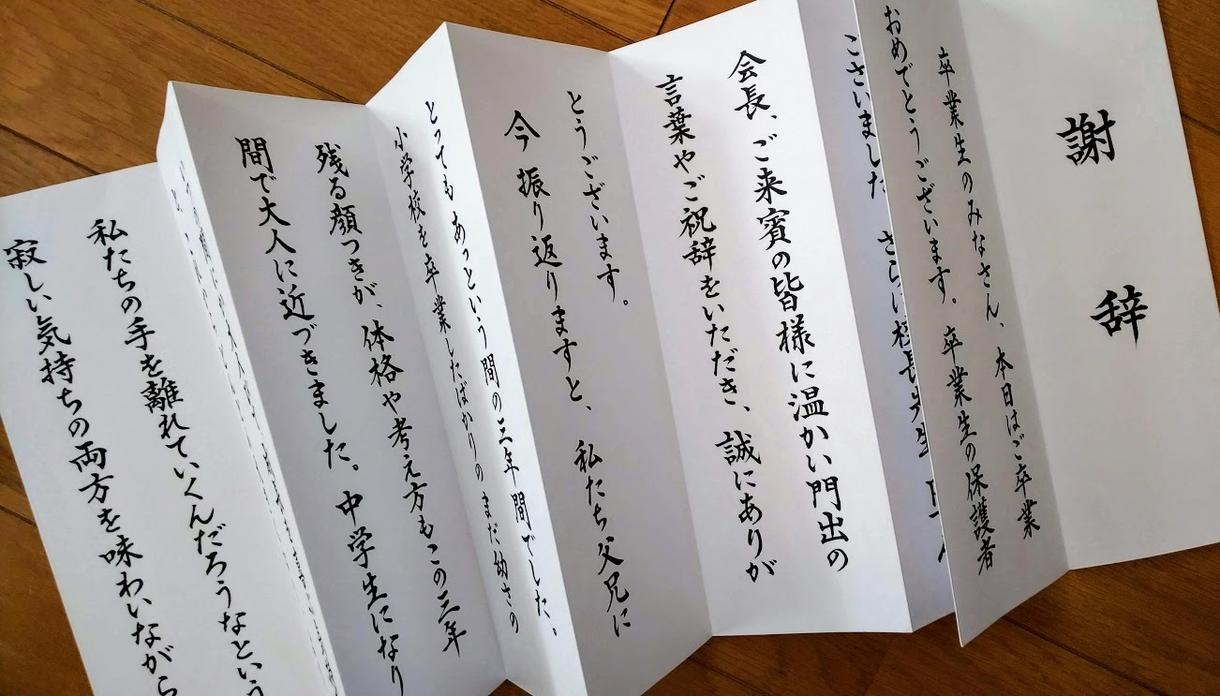 謝辞
卒業生のみなさん、本日はご卒業
おめでとうございます。卒業生の保護者
ございました。さらに校長先生
会長、ご来賓の皆様に温かい門出の
言葉やご祝辞をいただき、誠にありが
とうございます。
今振り返りますと、私たち父兄に
とってもあっという間の三年間でした。
小学校を卒業したばかりのまだ幼さの
残る顔つきが、体格や考え方もこの三年
間で大人に近づきました。中学生になり
私たちの手を離れていくんだろうなという
寂しい気持ちの両方を味わいながら